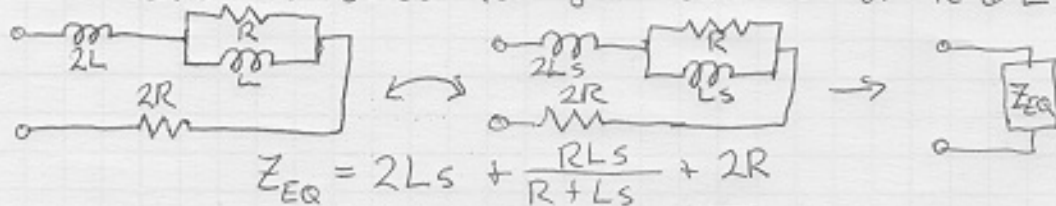 R
2L
L
2R
R
2Ls
Ls
2R
Z_EQ
Z_EQ = 2Ls + RLs / (R + Ls) + 2R